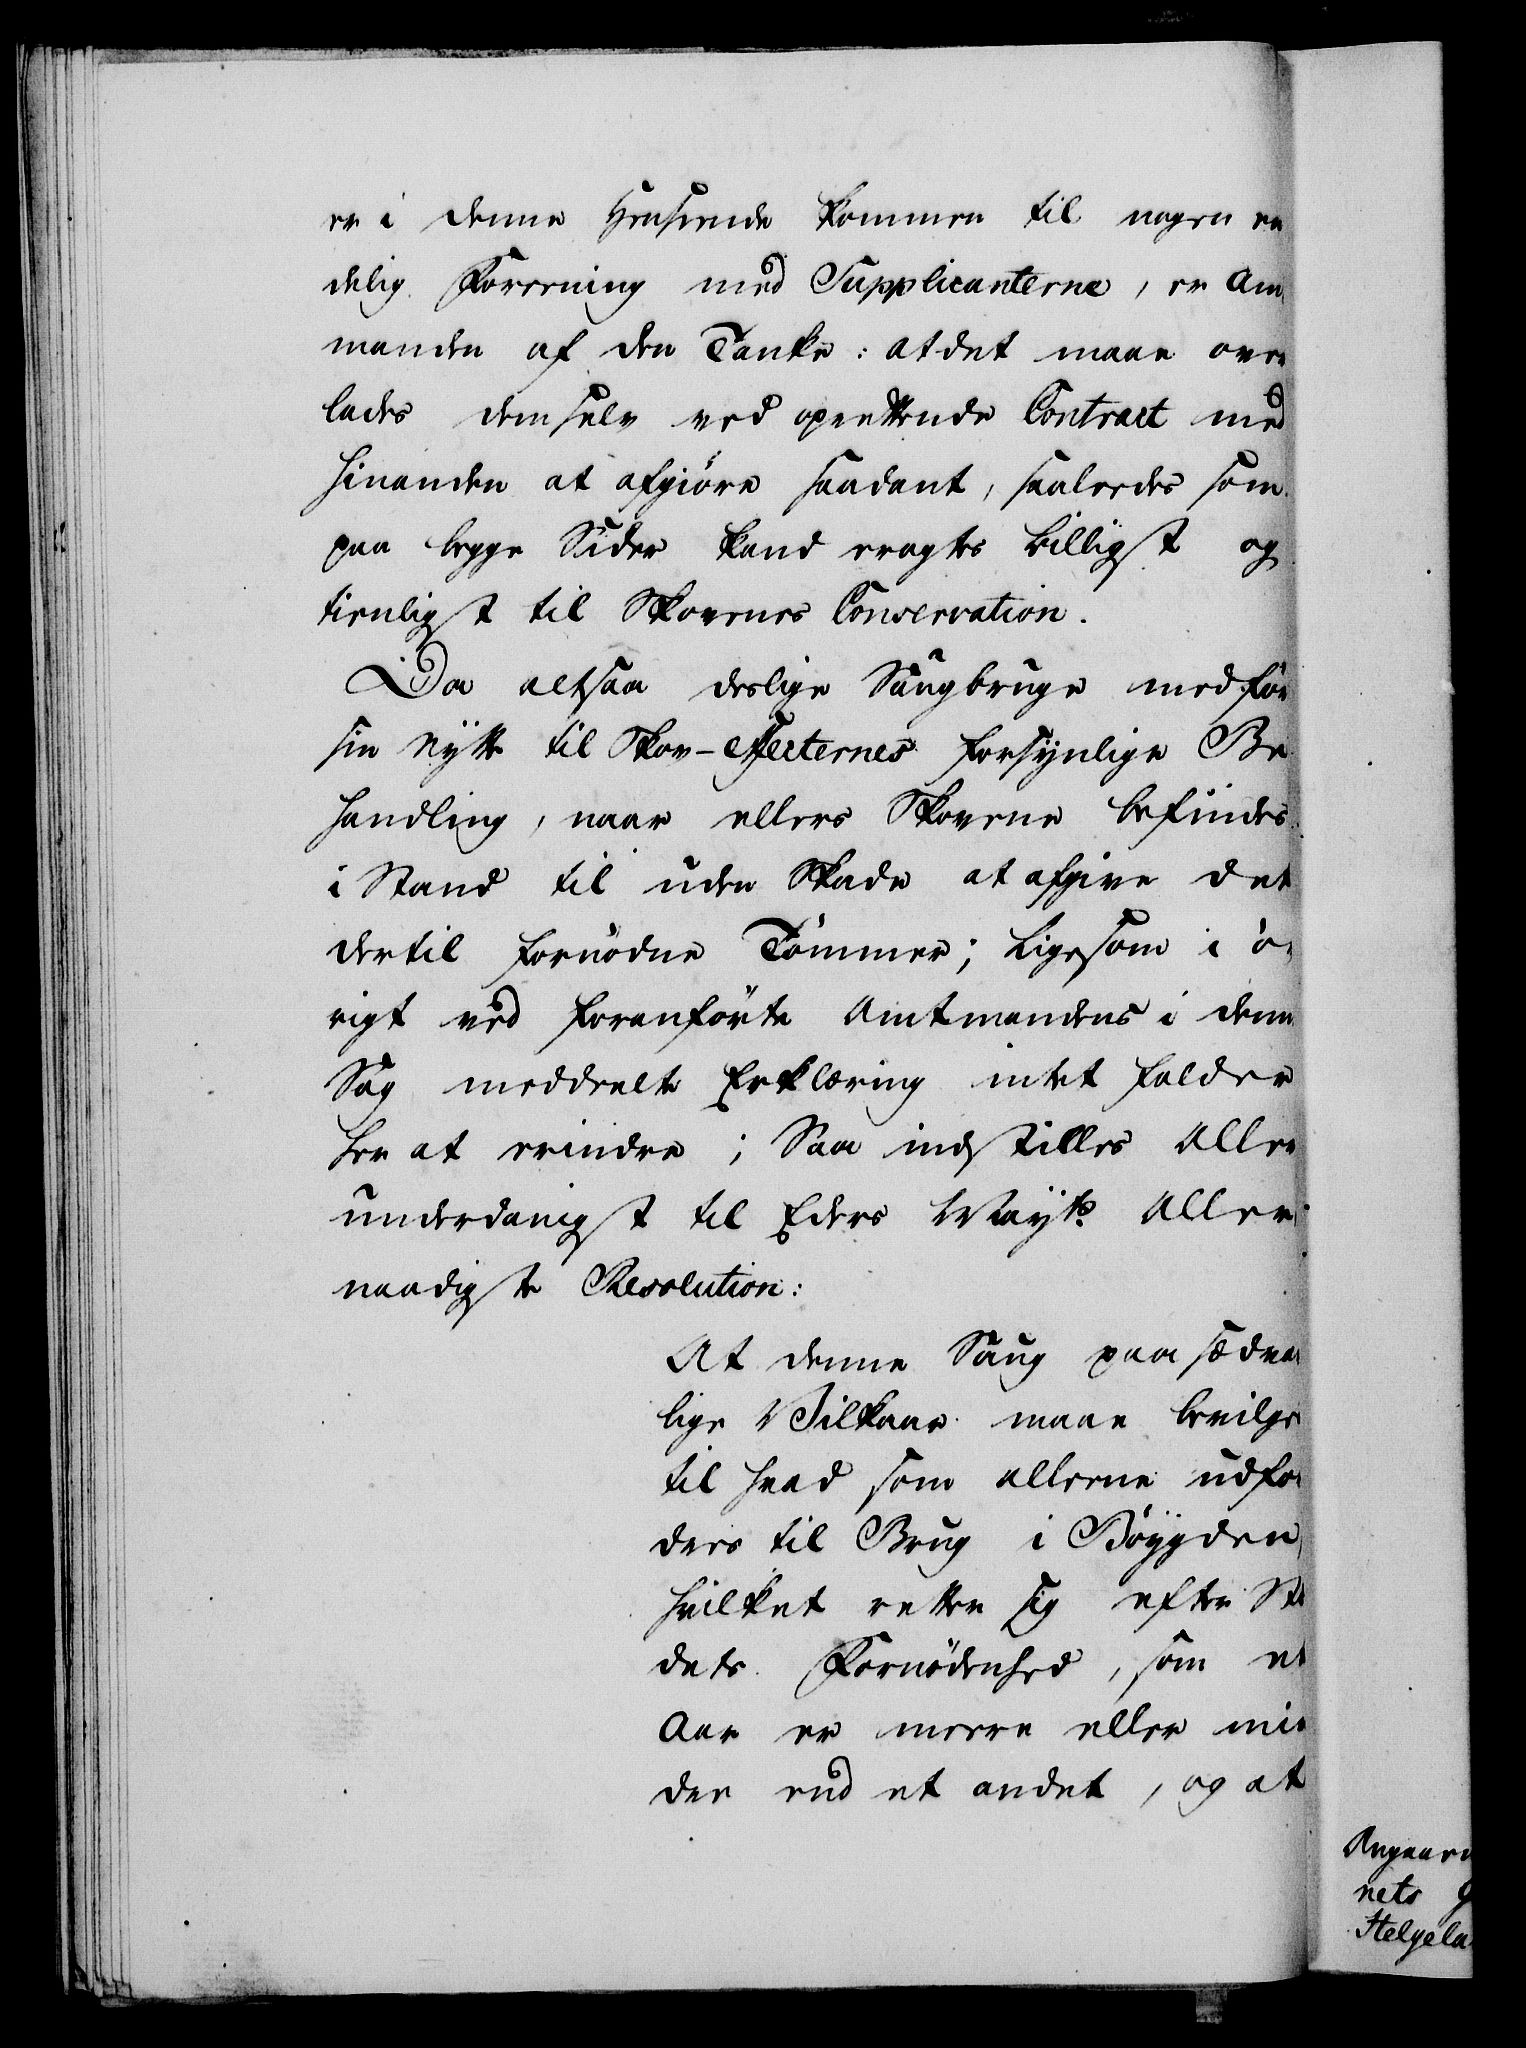 er i denne Henseende kommen til nogen en
delig Foreening med Supplicanterne, er Am
manden af den Tanke: at det maae over
lades dem selv ved oprettende Contract med
hinanden at afgiöre saadant, saaledes som
paa begge Sider kand eragtes billigst og
tienligst til Skovenes Conservation.
Da altsaa deslige Saugbruge medför
sin Nytte til Skov-Effecternes forsynlige Be
handling, naar ellers Skovene befindes
i Stand til uden Skade at afgive det
dertil fornödne Tömmer; Ligesom i ö
rigt ved foranförte Amtmandens i denne
Sag meddeelte Erklæring intet falder
her at erindre; Saa indstilles Aller
underdanigst til Eders Mayts Aller
naadigste Resolution:
At denne Saug paa sædvan
lige Vilkaar maae bevilges
til hvad som alleene udfor
dres til Brug i Böygden,
hvilket retter sig efter Ste
dets Fornödenhed, som et
Aar er meere eller min
dre end et andet, og at
Angaaen
nets G
Helgela